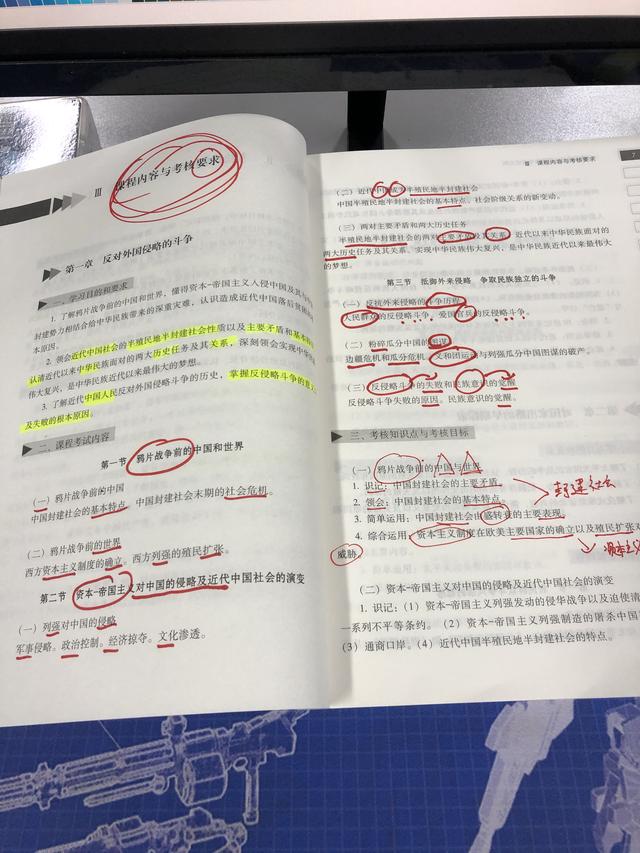 III 课程内容与考核要求
第一章 反对外国侵略的斗争
一、学习目的和要求
1. 了解鸦片战争前的中国和世界，懂得资本-帝国主义入侵中国及其与中国
封建势力相结合给中华民族带来的深重灾难，认识造成近代中国落后贫困的
本原因。
2. 领会近代中国社会的半殖民地半封建社会性质以及主要矛盾和基本
认清近代以来中华民族面对的两大历史任务及其关系，深刻领会实现中华
伟大复兴，是中华民族近代以来最伟大的梦想。
3. 了解近代中国人民反对外国侵略斗争的历史，掌握反侵略斗争的意义
及失败的根本原因。
二、课程考试内容
第一节 鸦片战争前的中国和世界
(一) 鸦片战争前的中国
中国封建社会的基本特点。中国封建社会末期的社会危机。
(二) 鸦片战争前的世界
西方资本主义制度的确立。西方列强的殖民扩张。
第二节 资本-帝国主义对中国的侵略及近代中国社会的演变
(一) 列强对中国的侵略
军事侵略。政治控制。经济掠夺。文化渗透。
III 课程内容与考核要求 7
(二) 近代中国成为半殖民地半封建社会
中国半殖民地半封建社会的基本特点。社会阶级关系的新变动。
(三) 两对主要矛盾和两大历史任务
半殖民地半封建社会的两对主要矛盾及其关系。近代以来中华民族面对的
两大历史任务及其关系。实现中华民族伟大复兴，是中华民族近代以来最伟大
的梦想。
第三节 抵御外来侵略 争取民族独立的斗争
(一) 反抗外来侵略的斗争历程
人民群众的反侵略斗争。爱国官兵的反侵略斗争。
(二) 粉碎瓜分中国的图谋
边疆危机和瓜分危机。义和团运动与列强瓜分中国图谋的破产。
(三) 反侵略斗争的失败和民族意识的觉醒
反侵略斗争失败的原因。民族意识的觉醒。
三、考核知识点与考核目标
(一) 鸦片战争前的中国与世界
1. 识记：中国封建社会的主要矛盾。
2. 领会：中国封建社会的基本特点。
封建社会
3. 简单运用：中国封建社会由盛转衰的主要表现。
4. 综合运用：资本主义制度在欧美主要国家的确立以及殖民扩张对
威胁
(二) 资本-帝国主义对中国的侵略及近代中国社会的演变
1. 识记：(1) 资本-帝国主义列强发动的侵华战争以及迫使清
一系列不平等条约。(2) 资本-帝国主义列强制造的屠杀中国
(3) 通商口岸。(4) 近代中国半殖民地半封建社会的特点。